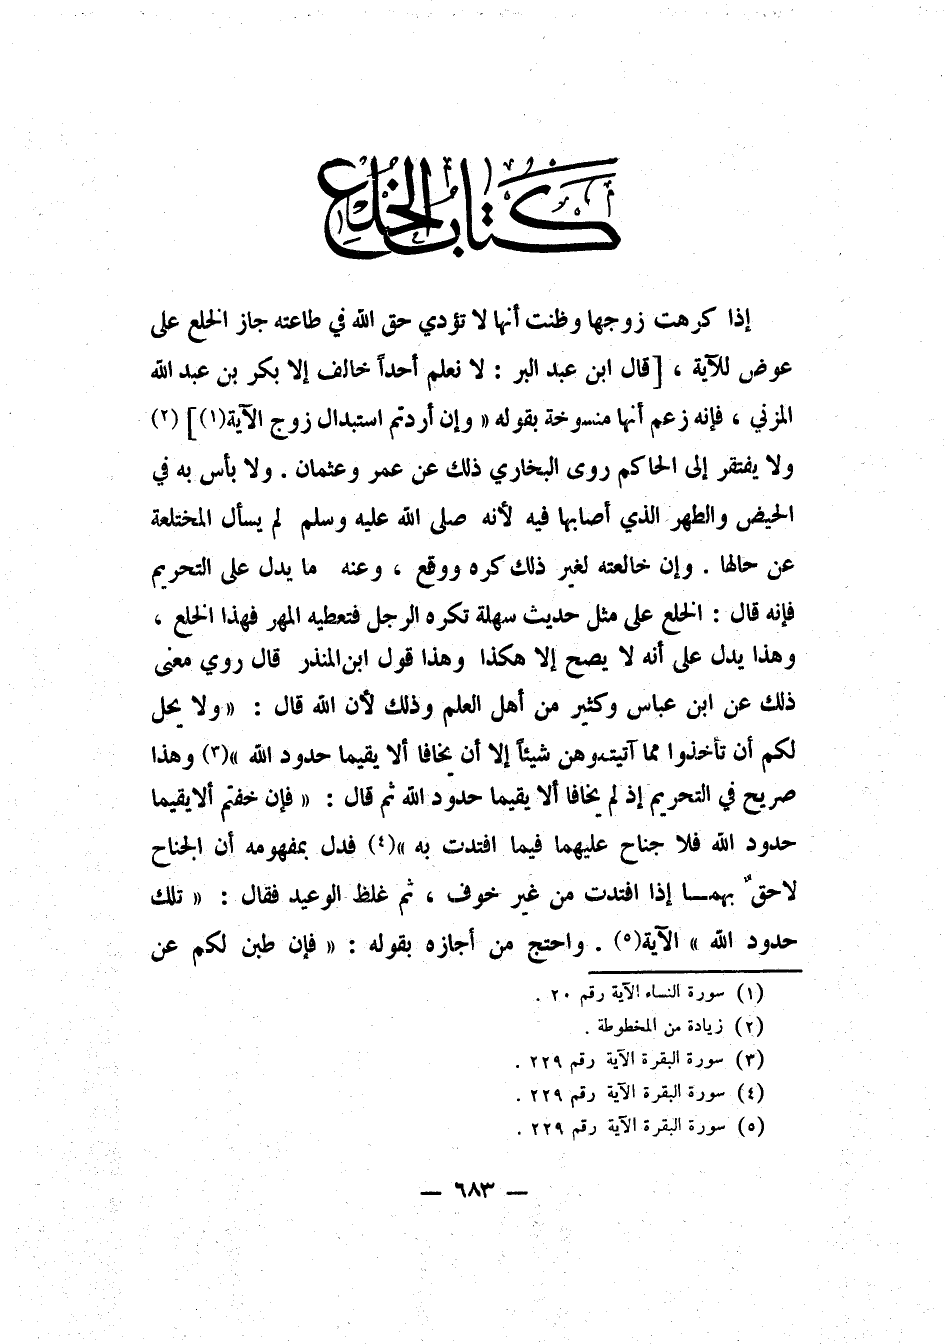 كتاب الخلع
إذا كرهت زوجها وظنت أنها لا تؤدي حق الله في طاعته جاز الخلع على
عوض للآية ، [قال ابن عبد البر : لا نعلم أحداً خالف إلا بكر بن عبد الله
المزني ، فإنه زعم أنها منسوخة بقوله « وإن أردتم استبدال زوج الآية(١)] (٢)
ولا يفتقر إلى الحاكم روى البخاري ذلك عن عمر وعثمان . ولا بأس به في
الحيض والطهر الذي أصابها فيه لأنه صلى الله عليه وسلم لم يسأل المختلعة
عن حالها . وإن خالعته لغير ذلك كره ووقع ، وعنه ما يدل على التحريم
فإنه قال : الخلع على مثل حديث سهلة تكره الرجل فتعطيه المهر فهذا الخلع ،
وهذا يدل على أنه لا يصح إلا هكذا وهذا قول ابن المنذر قال روي معنى
ذلك عن ابن عباس وكثير من أهل العلم وذلك لأن الله قال : « ولا يحل
لكم أن تأخذوا مما آتيتموهن شيئاً إلا أن يخافا ألا يقيما حدود الله »(٣) وهذا
صريح في التحريم إذ لم يخافا ألا يقيما حدود الله ثم قال : « فإن خفتم ألا يقيما
حدود الله فلا جناح عليهما فيما افتدت به »(٤) فدل بمفهومه أن الجناح
لاحقٌ بهما إذا افتدت من غير خوف ، ثم غلظ الوعيد فقال : « تلك
حدود الله » الآية(٥) . واحتج من أجازه بقوله : « فإن طبن لكم عن
(١) سورة النساء الآية رقم ٢٠ .
(٢) زيادة من المخطوطة .
(٣) سورة البقرة الآية رقم ٢٢٩ .
(٤) سورة البقرة الآية رقم ٢٢٩ .
(٥) سورة البقرة الآية رقم ٢٢٩ .
— ٦٨٣ —